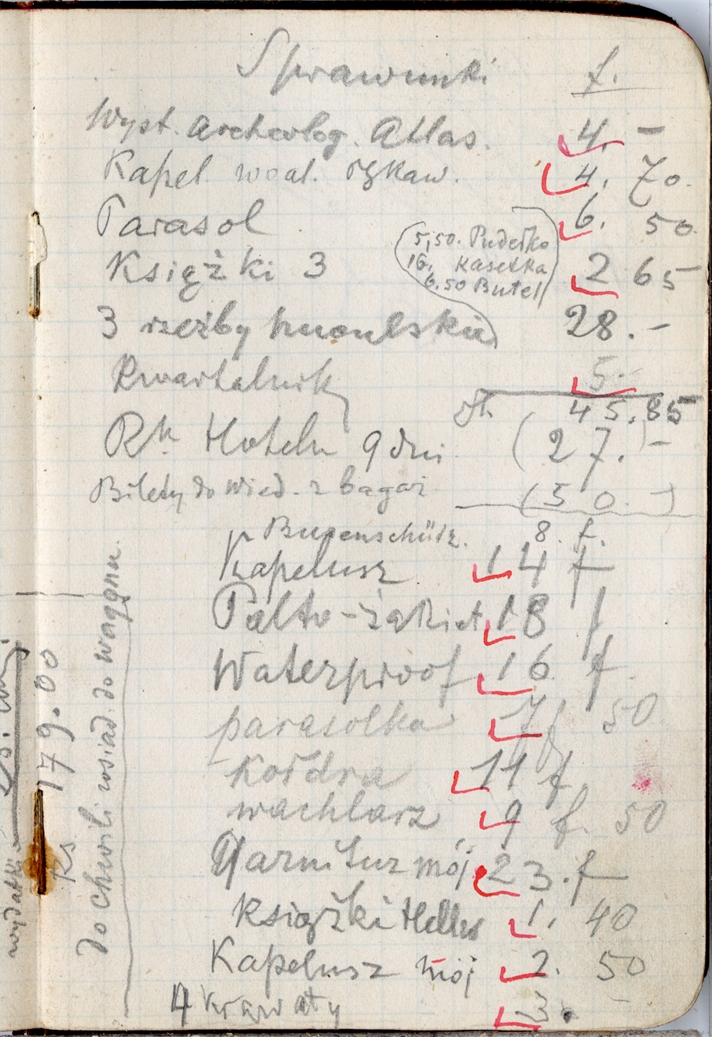 Sprawunki f.
Wyst. Archeolog. Atlas. 4. -
Kapel. woal. rękaw. 4. 70.
Parasol 6. 50
5,50. Pudełko
Książki 3 2 65
16. Kasetka
6.50 Butel
3 rzeźby huculskie 28.-
Kwartalnik 5.-
45.85
Rh. Hotelu 9 dni (27.-)
Bilety do Wied. z bagaż (50.-)
8. f.
Kapelusz 14 f
Palto-żakiet 18 f
Waterproof 16 f.
parasolka 7f 50
Kołdra 11 f
wachlarz 9 f. 50
Garnitur mój 23.f
Książki Helles 1. 40
Kapelusz mój 2. 50
4 krawaty
do chwili wsiad. do wagonu.
Ks 179.00
wydatki